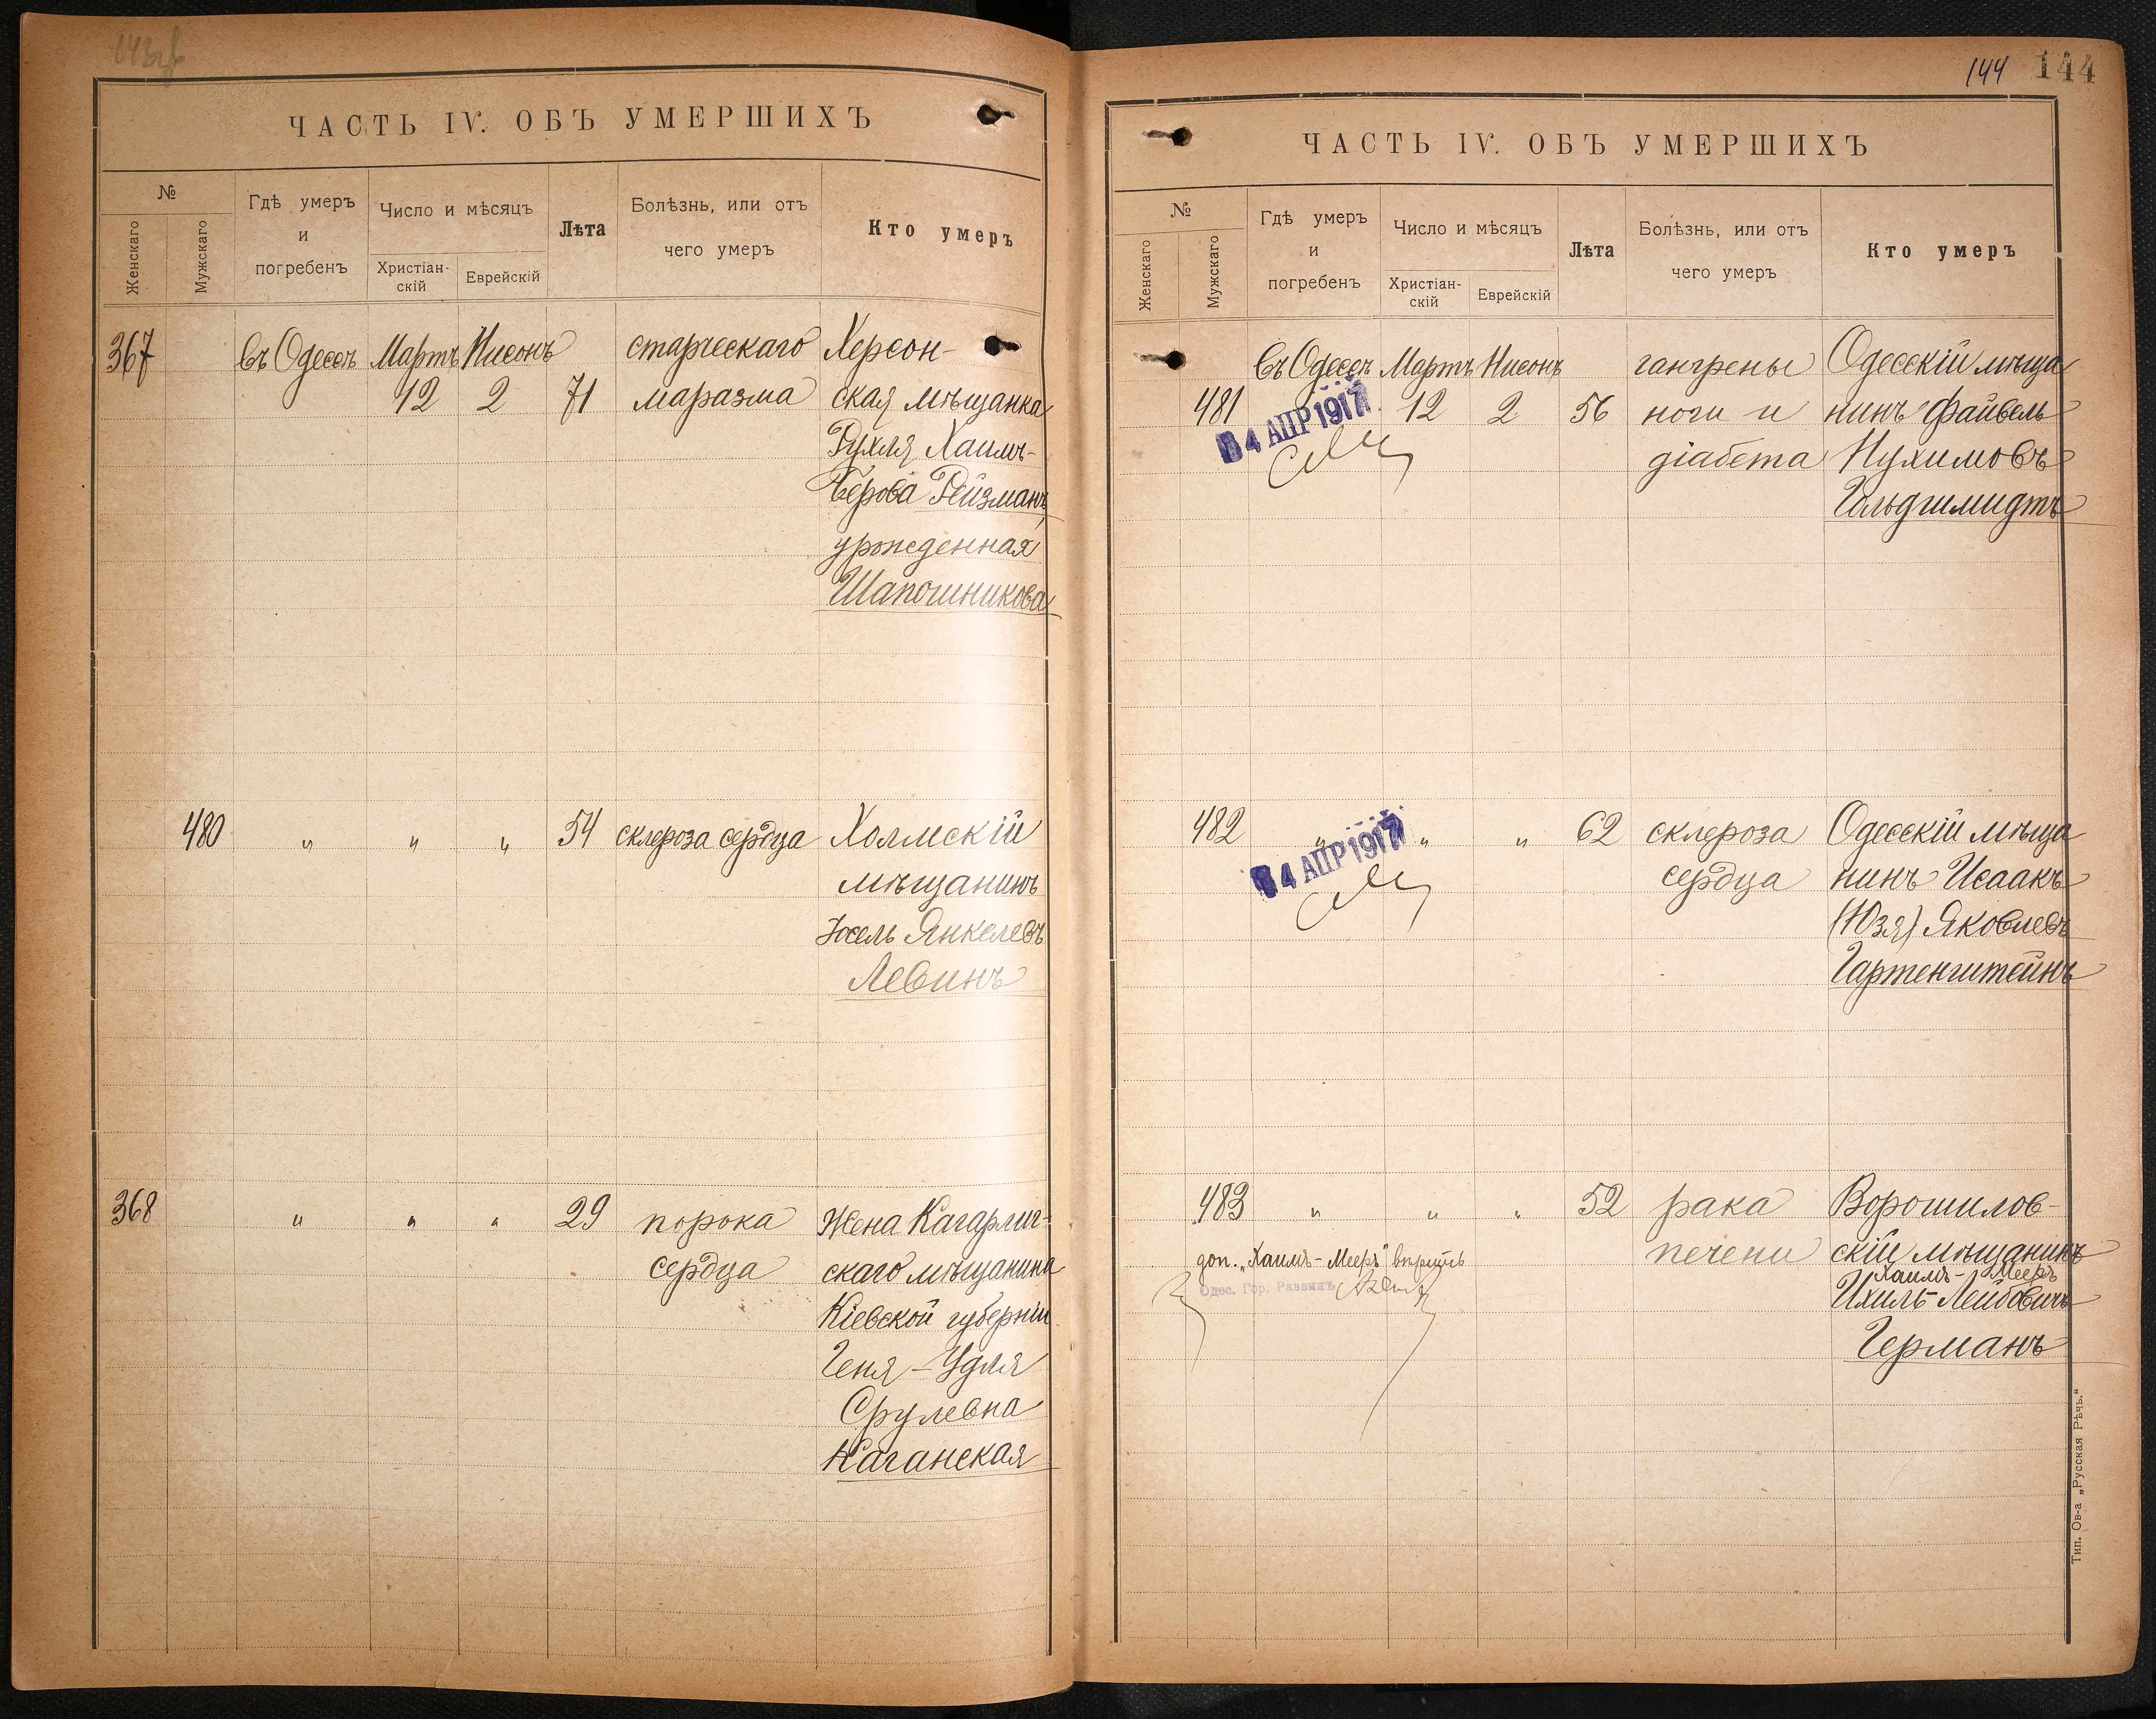 ЧАСТЬ IV. ОБЪ УМЕРШИХЪ
№
Женскаго
Мужскаго
Гдѣ умеръ
и
погребенъ
Число и мѣсяцъ
Христіан-
скій
Еврейскій
Лѣта
Болѣзнь, или отъ
чего умеръ
Кто умеръ
367 въ Одессѣ Мартъ Нисонъ старческаго Херсон-
12 2 71 маразма ская мѣщанка
Рухля Хаимъ-
Берова Рейзманъ,
урожденная
Шапошникова
480 " " " 54 склероза сердца Холмскій
мѣщанинъ
Іосель Янкелевъ
Левинъ
368 " " " 29 порока Жена Кагарлиг-
сердца скаго мѣщанина
Кіевской губерніи
Геня-Удля
Срулевна
Каганская
144 144
ЧАСТЬ IV. ОБЪ УМЕРШИХЪ
№
Женскаго
Мужскаго
Гдѣ умеръ
и
погребенъ
Число и мѣсяцъ
Христіан-
скій
Еврейскій
Лѣта
Болѣзнь, или отъ
чего умеръ
Кто умеръ
въ Одессѣ Мартъ Нисонъ гангрены Одесскій мѣща
481 12 2 56 ноги и нинъ Файвель
4 АПР 1917
діабета Нухимовъ
Гольдшмидтъ
482 " " " 62 склероза Одесскій мѣща
4 АПР 1917
сердца нинъ Исаакъ
(Юзя) Яковлевъ
Гартенштейнъ
483 " " " 52 рака Ворошилов-
печени скій мѣщанинъ
доп. „Хаимъ-Мееръ" вѣрить
Хаимъ-Мееръ
Одес. Гор. Раввинъ
Ихиль-Лейбовичъ
Германъ
Тип. Ов-а „Русская Рѣчь."